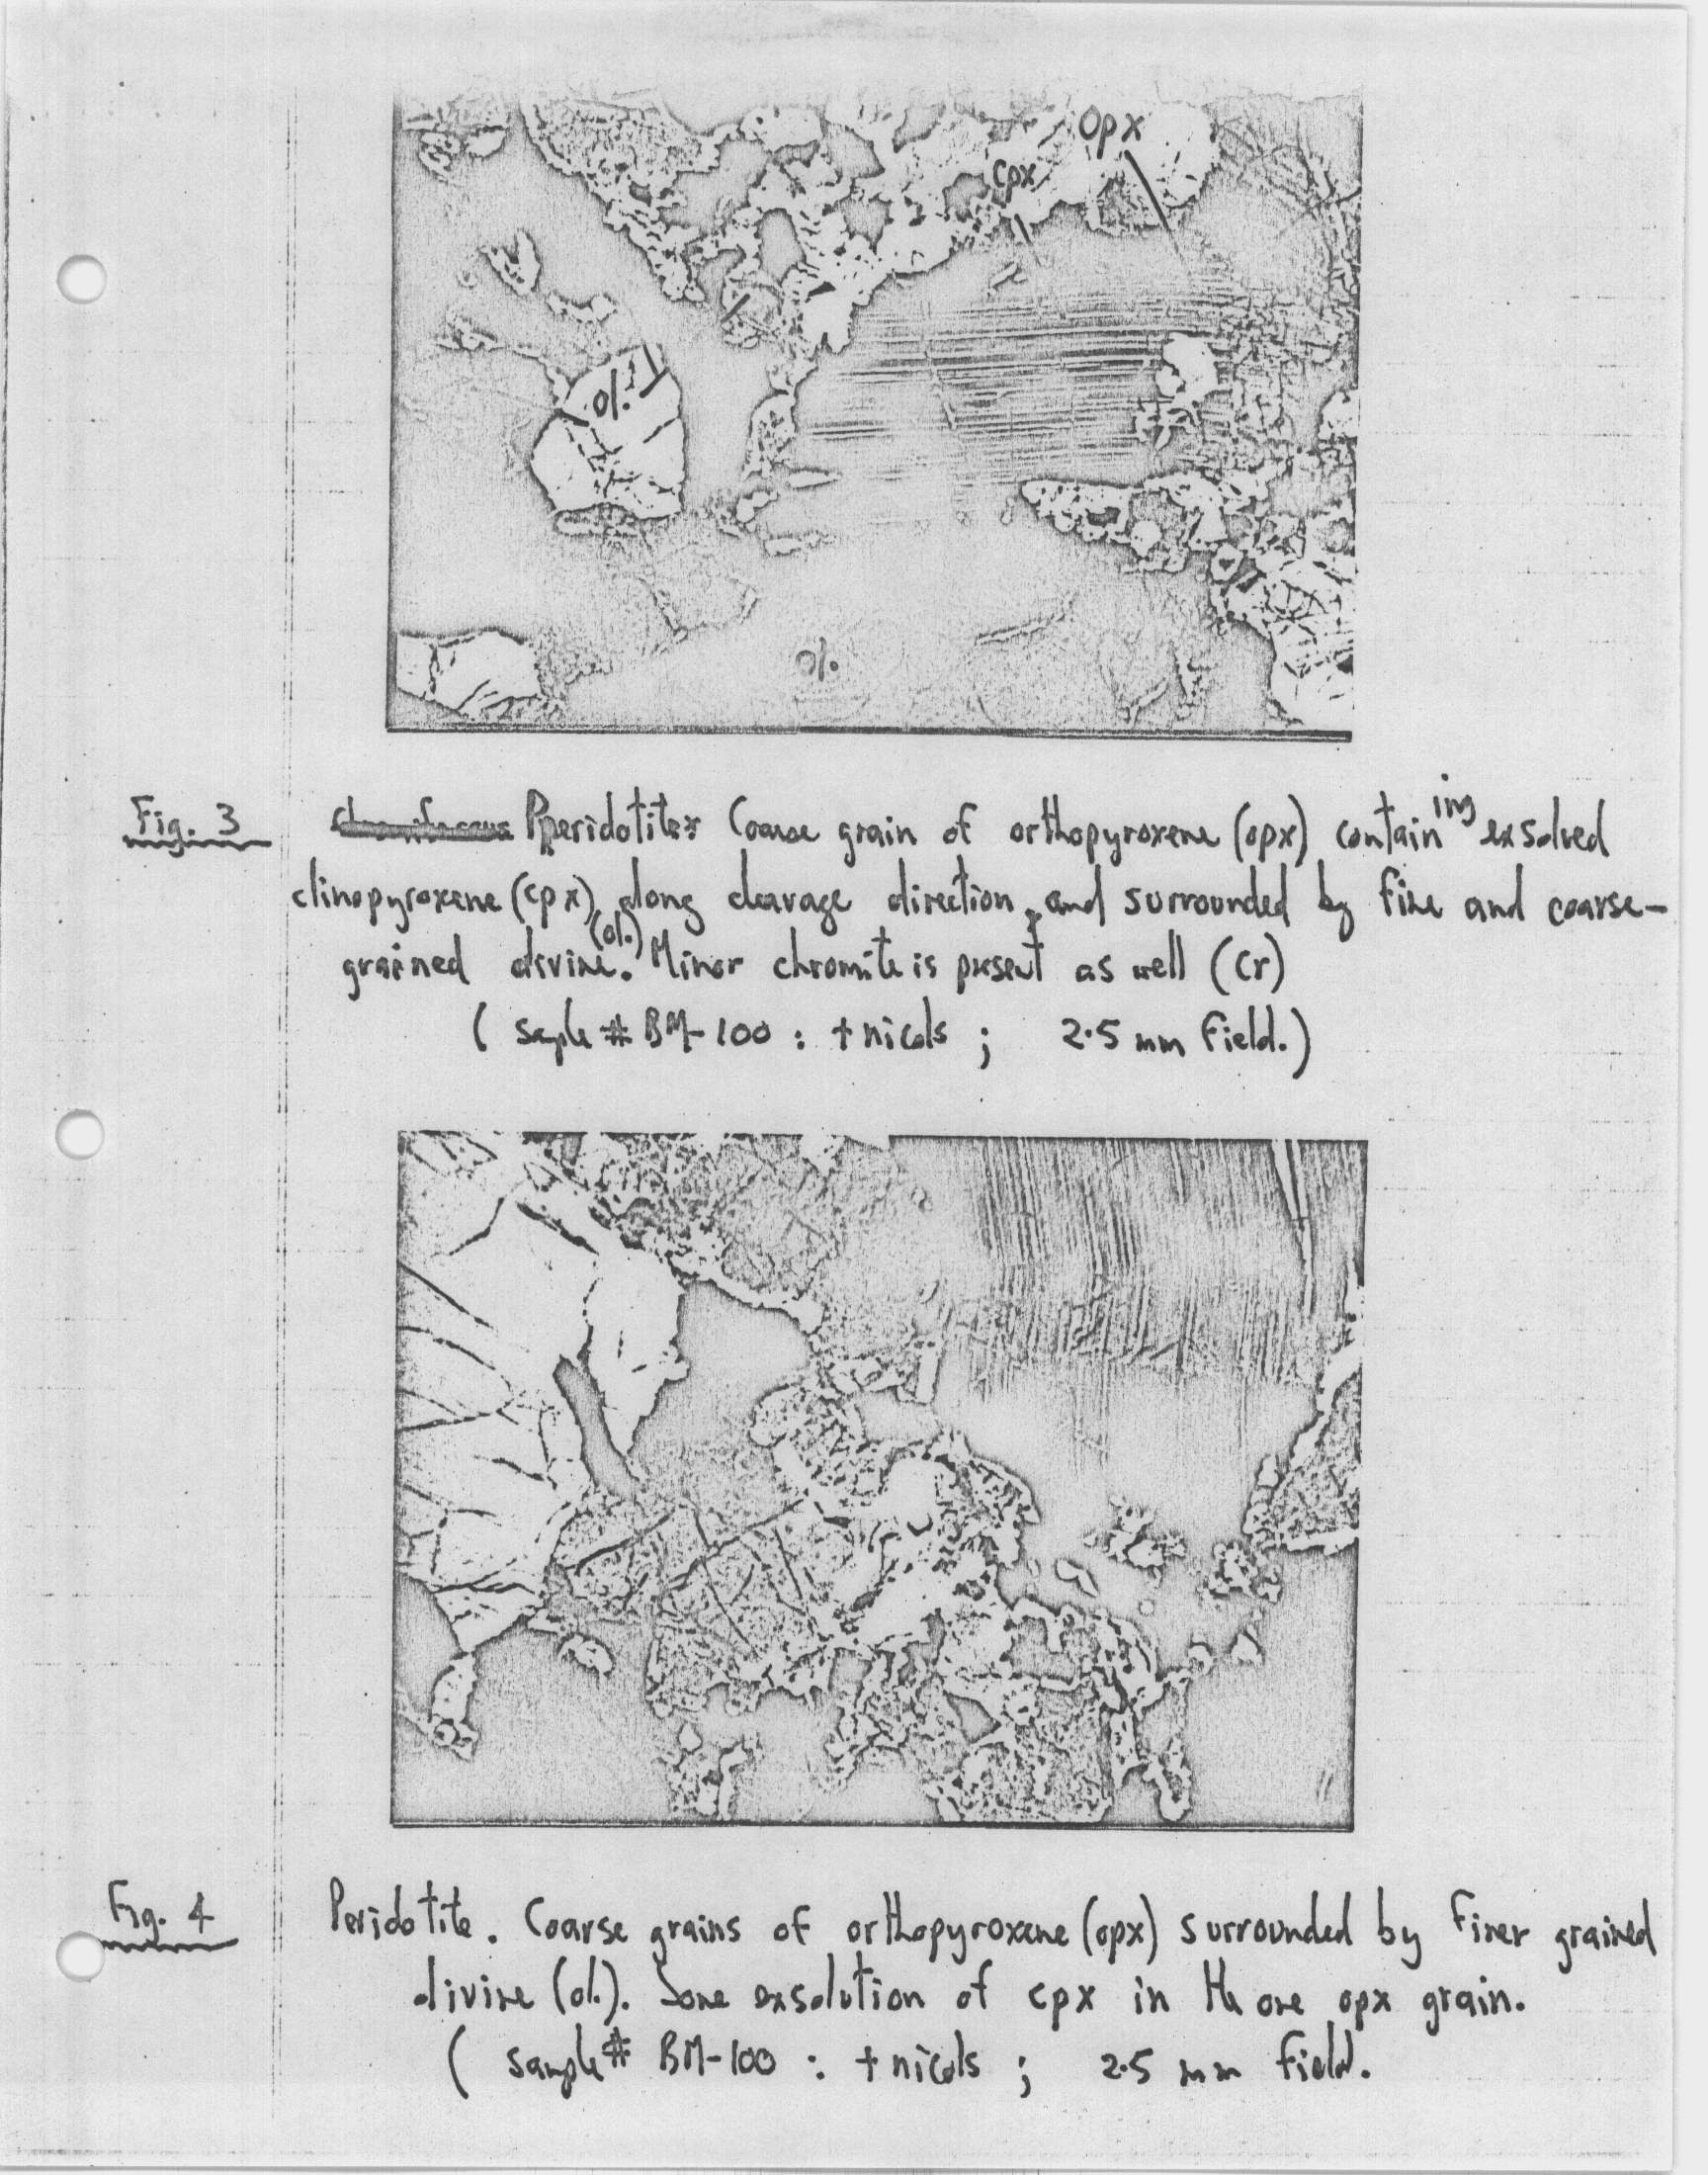 Opx
Cpx
Ol.
Ol.
Fig. 3 Peridotite: Coarse grain of orthopyroxene (opx) containing exsolved
clinopyroxene (cpx) along cleavage direction and surrounded by fine and coarse-
grained olivine (ol.). Minor chromite is present as well (Cr)
( Sample # BM-100 : + nicols ; 2.5 mm field.)
Fig. 4 Peridotite. Coarse grains of orthopyroxene (opx) surrounded by finer grained
olivine (ol.). Some exsolution of cpx in the one opx grain.
( Sample # BM-100 : + nicols ; 2.5 mm field.